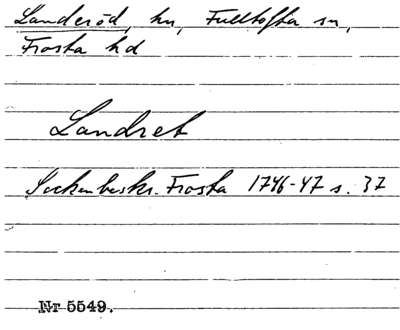 Landeröd, hn, Fulltofta sn,
Frosta hd
Landret
Sockenbeskr. Frosta 1746-47 s. 37
Nr 5549.